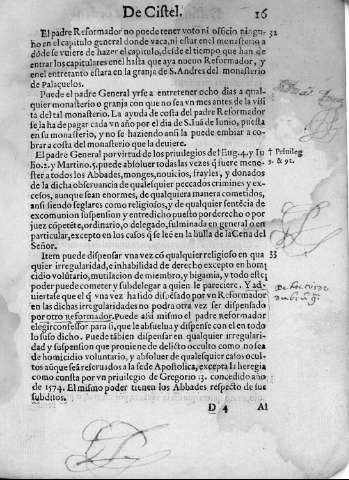 De Cistel. 16
El padre Reformador no puede tener voto ni officio ningu- 32
no en el capitulo general donde vaca, ni estar en el monasterio a
dõde se vuiere de hazer el capitulo, desde el tiempo que han de
entrar los capitulares en el hasta que aya nueuo Reformador, y
en el entretanto estara en la granja de S. Andres del monasterio
de Palaçuelos.
Puede el padre General yrse a entretener ocho dias a qual-
quier monasterio o granja con que no sea vn mes antes de la visi
ta del tal monasterio. La ayuda de costa del padre Reformador
se la ha de pagar cada vn año por el dia de S. Iuã de Iunio, puesta
en su monasterio, y no se haziendo ansi la puede embiar a co-
brar a costa del monasterio que la deuiere.
El padre General por virtud de los priuilegios de Eug. 4. y Iu † Priuileg
lio. 2. y Martino. 5. puede absoluer todas las vezes q̃ fuere mene- 2. & 92.
ster a todos los Abbades, monges, nouicios, frayles, y donados
de la dicha obseruancia de qualesquier peccados crimines y ex-
cesos, aunque sean enormes, de qualquiera manera cometidos,
ansi siendo seglares como religiosos, y de qualquier sentẽcia de
excomunion suspension y entredicho puesto por derecho o por
juez cõpetẽte, ordinario, o delegado, fulminada en general o en
particular, excepto en los casos q̃ se leẽ en la bulla de la Cena del
Señor.
Item puede dispensar vna vez cõ qualquier religioso en qua 33
quier irregularidad, e inhabilidad de derecho excepto en hom
cidio volũtario, mutilacion de miembro, y bigamia, y todo este
poder puede cometer y subdelegar a quien le pareciere. Y ad
uiertase que el q̃ vna vez ha sido dispẽsado por vn Reformador
en las dichas irregularidades no podra otra vez ser dispensado
por otro Reformador. Puede assi mismo el padre Reformador
elegir confessor para si, que le absuelua y dispense con el en todo
lo suso dicho. Puede tãbien dispensar en qualquier irregulari-
dad y suspension que prouiene de delicto occulto como no sea
de homicidio voluntario, y absoluer de qualesquier casos ocul-
tos aũque seã reseruados a la sede Apostolica, excepta la heregia
como consta por vn priuilegio de Gregorio 13. concedido año
de 1574. El mismo poder tienen los Abbades respecto de sus
subditos.
D 4 Al